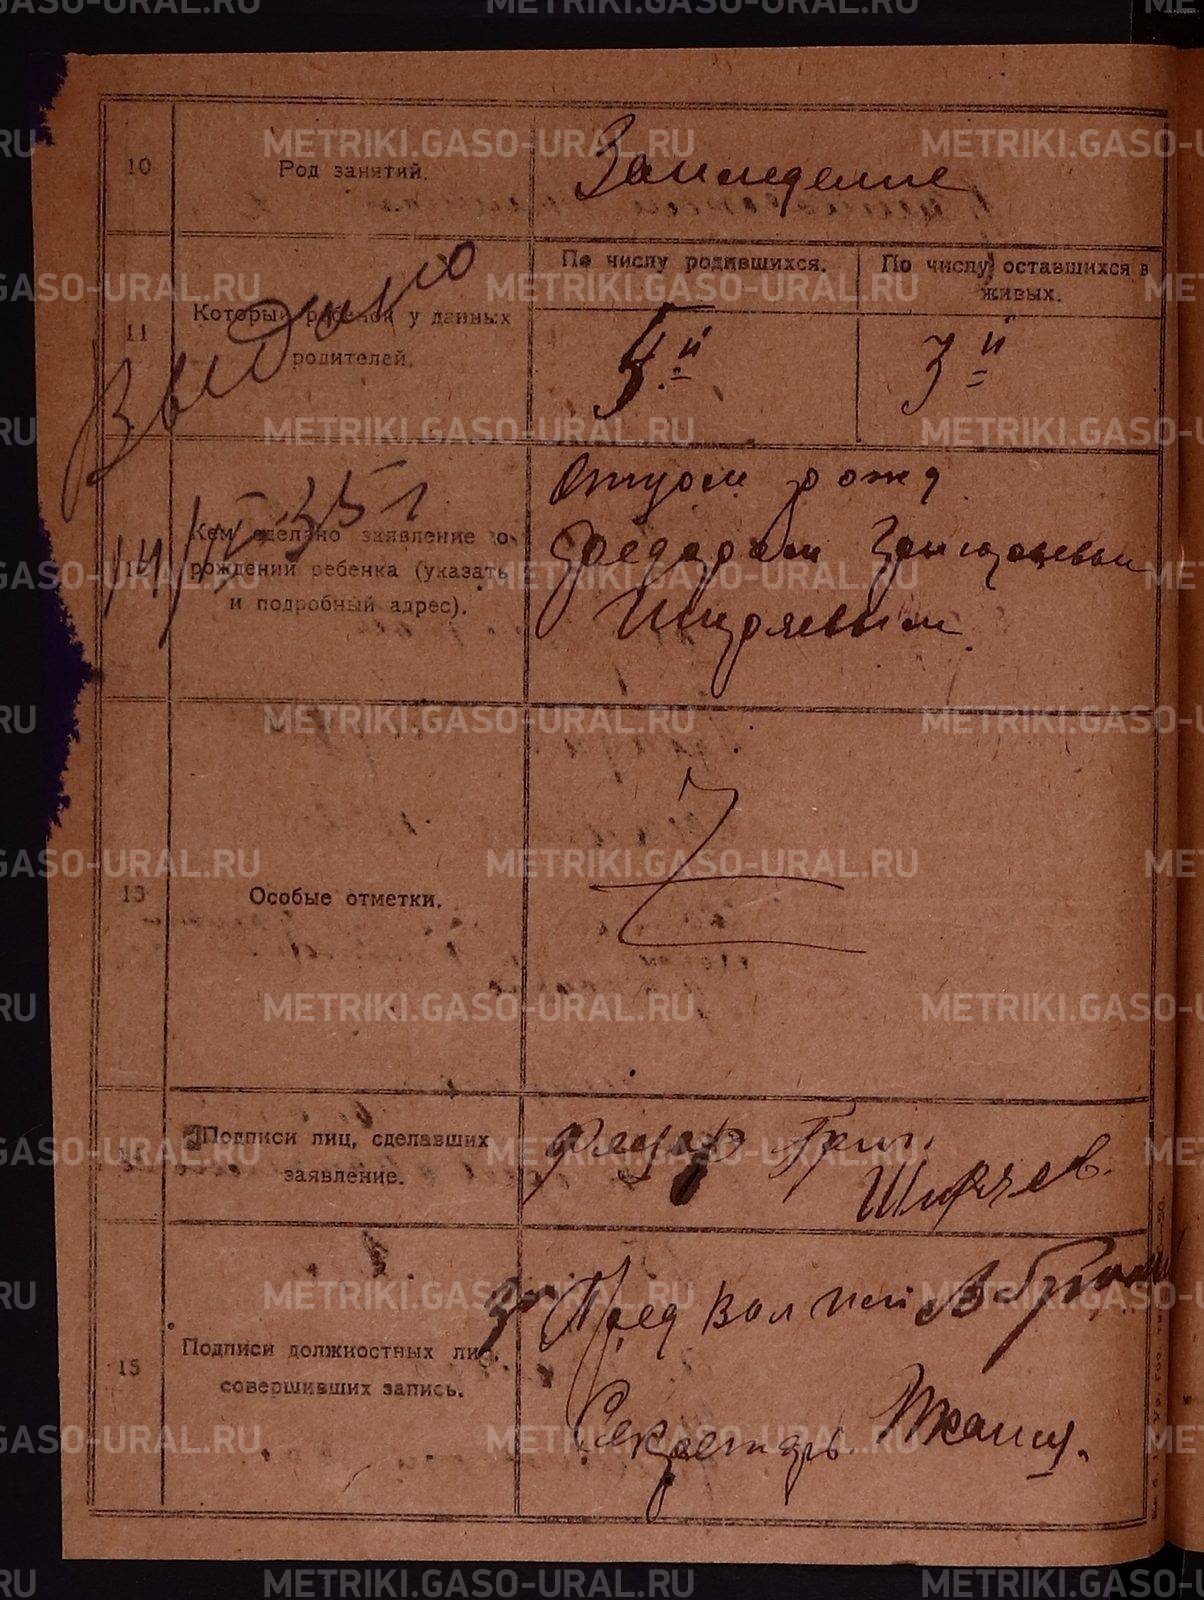 METRIKI.GASO-URAL.RU
10
Род занятий.
Земледелие
11
Который ребенок у данных
родителей.
По числу родившихся.
По числу оставшихся в
живых.
5.й
3й
Выдано
14/IV-35 г
Кем сделано заявление о
рождении ребенка (указать
и подробный адрес).
Отцом рожд
Федором
Ширяевым
13
Особые отметки.
Подписи лиц, сделавших
заявление.
Федор Григ.
Ширяев.
15
Подписи должностных лиц,
совершивших запись.
За Пред Вол
Секретарь